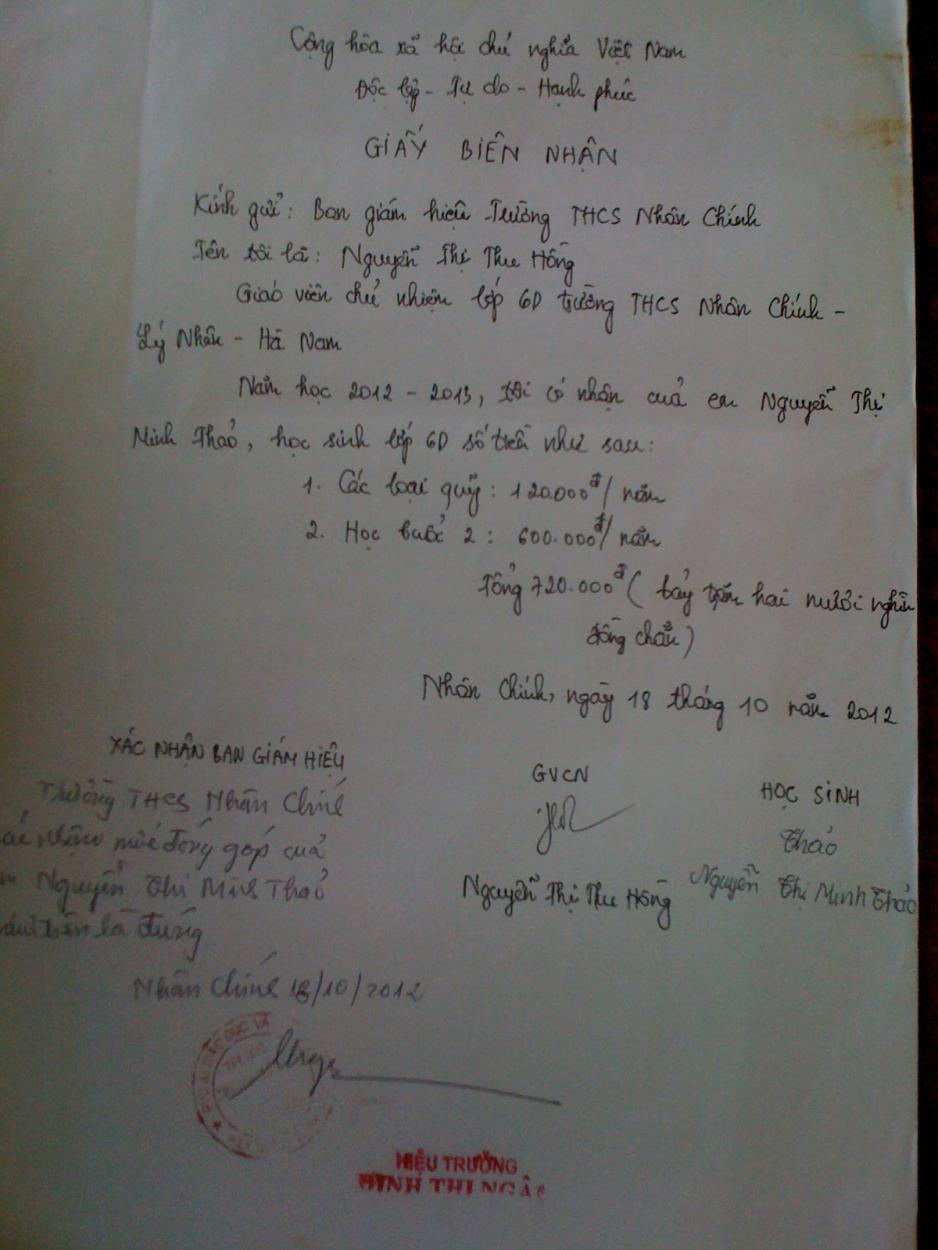 Cộng hòa xã hội chủ nghĩa Việt Nam
Độc lập - Tự do - Hạnh phúc
GIẤY BIÊN NHẬN
Kính gửi: Ban giám hiệu Trường THCS Nhân Chính
Tên tôi là: Nguyễn Thị Thu Hồng
Giáo viên chủ nhiệm lớp 6D trường THCS Nhân Chính -
Lý Nhân - Hà Nam
Năm học 2012 - 2013, tôi có nhận của em Nguyễn Thị
Minh Thảo, học sinh lớp 6D số tiền như sau:
1. Các loại quỹ: 120.000đ/ năm
2. Học buổi 2: 600.000đ/ năm
Tổng 720.000đ ( bảy trăm hai mươi nghìn
đồng chẵn)
Nhân Chính, ngày 18 tháng 10 năm 2012
XÁC NHẬN BAN GIÁM HIỆU
Trường THCS Nhân Chính
nhận mức đóng góp của
Nguyễn Thị Minh Thảo
như trên là đúng
Nhân Chính 18/10/2012
GVCN
Nguyễn Thị Thu Hồng
HỌC SINH
Thảo
Nguyễn Thị Minh Thảo
HIỆU TRƯỞNG
ĐINH THỊ NGÂ